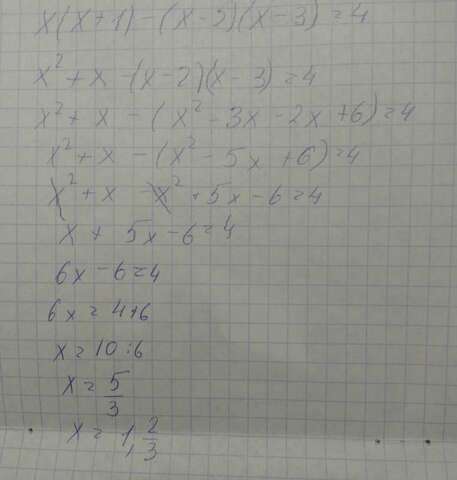 x(x+1)-(x-2)(x-3)=4
x²+x-(x-2)(x-3)=4
x²+x-(x²-3x-2x+6)=4
x²+x-(x²-5x+6)=4
x²+x-x²+5x-6=4
x+5x-6=4
6x-6=4
6x=4+6
x=10:6
x=5/3
x=1,2/3